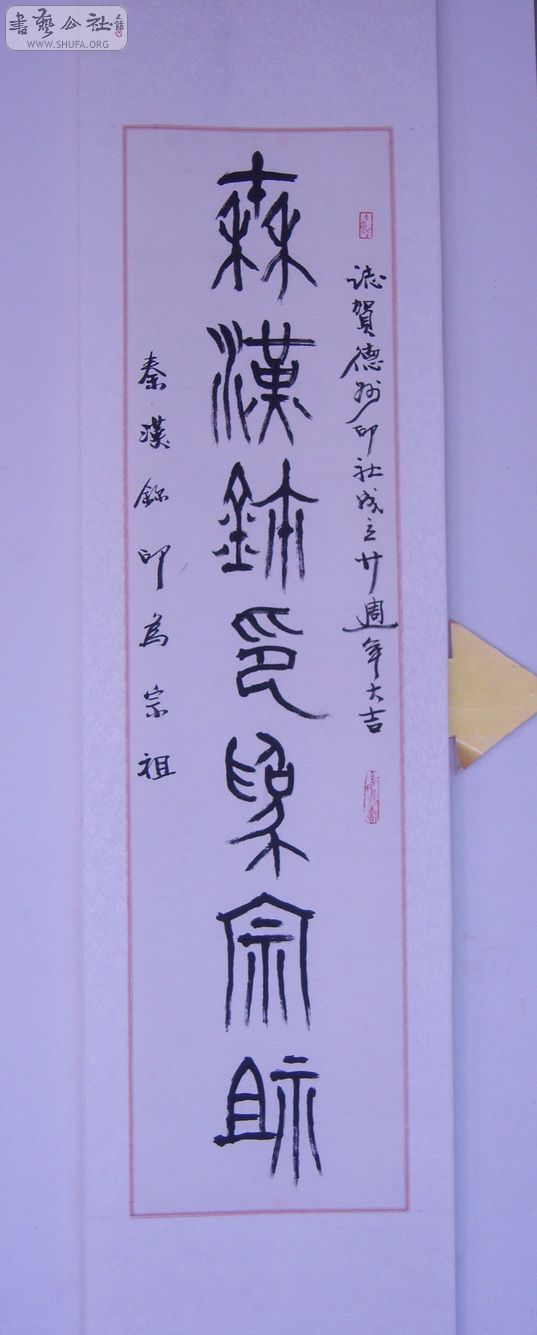 書藝公社
WWW.SHUFA.ORG
誌賀德州印社成立廿週年大吉
秦漢鉨印為宗祖
秦漢鉨印為宗祖